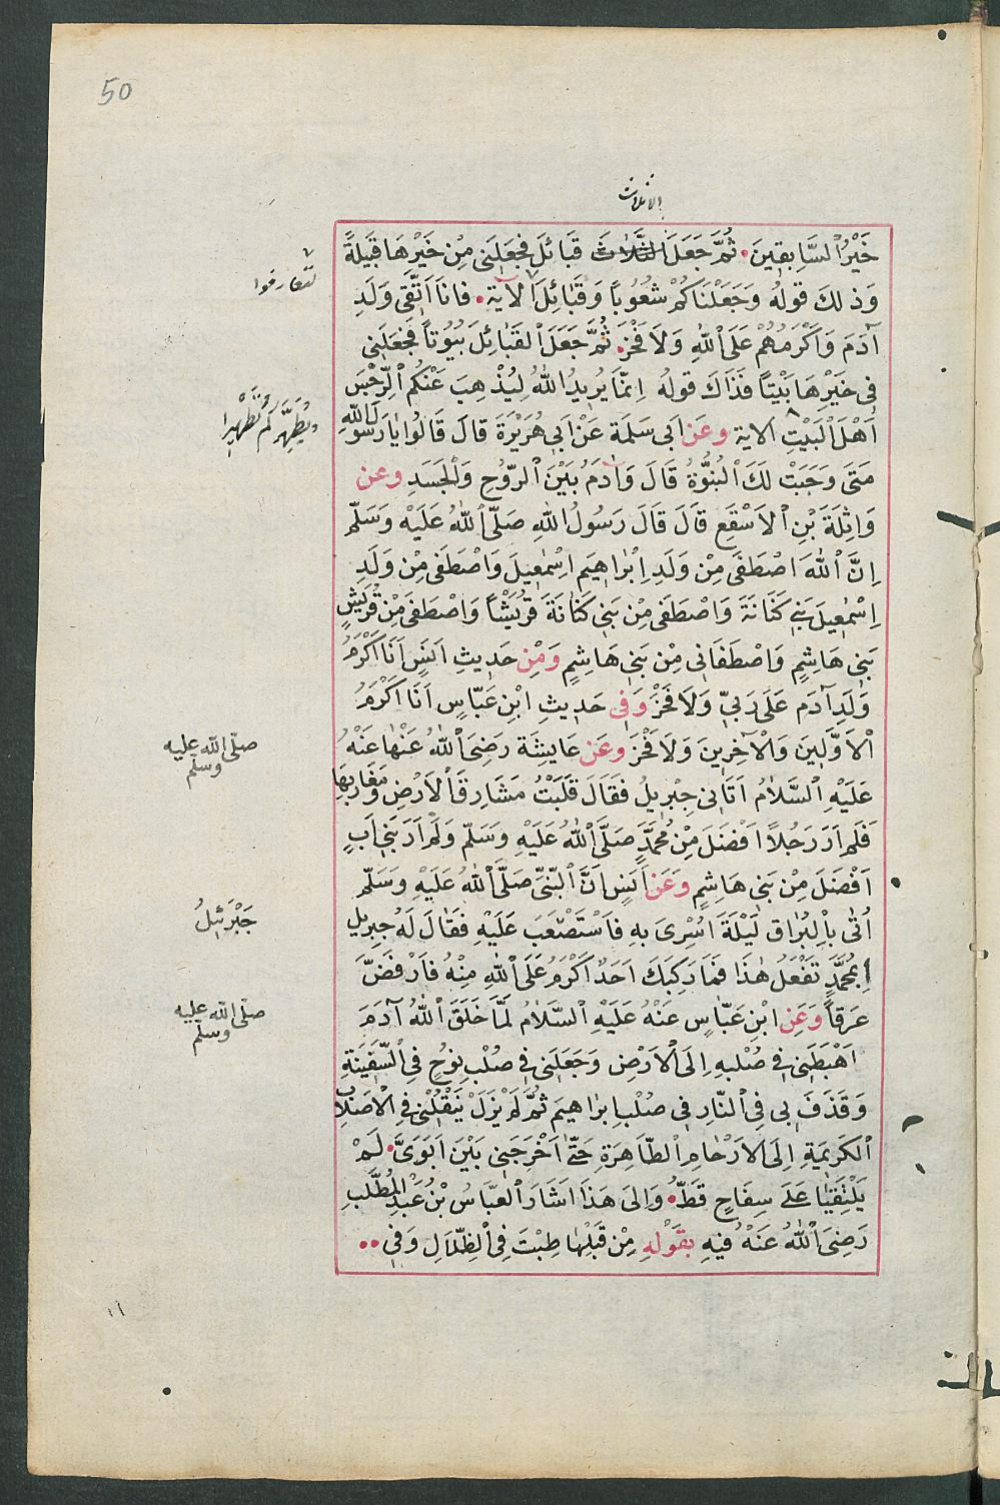 50
الاثلاث
خَيْرُ السَّابِقِينَ. ثُمَّ جَعَلَ الثَّلَاثَ قَبَائِلَ فَجَعَلَنِي مِنْ خَيْرِهَا قَبِيلَةً
لتعارفوا
وَذٰلِكَ قَولُهُ وَجَعَلْنَاكُمْ شُعُوبًا وَقَبَائِلَ الْآيَة. فَانَا اَتْقَى وَلَدِ
آدَمَ وَاَكْرَمُهُمْ عَلَى اللّٰهِ وَلَا فَخْرَ. ثُمَّ جَعَلَ الْقَبَائِلَ بُيُوتًا فَجَعَلَنِي
فِي خَيْرِهَا بَيْتًا فَذَاكَ قَولُهُ اِنَّمَا يُرِيدُ اللّٰهُ لِيُذْهِبَ عَنْكُمُ الرِّجْسَ
وَيُطَهِّرَكُمْ تَطْهِيرًا
اَهْلَ الْبَيْتِ الاية وعَن اَبِي سَلَمَة عَنْ اَبِي هُرَيْرَةَ قَالَ قَالُوا يَارَسُولَ اللّٰهِ
مَتَى وَجَبَتْ لَكَ النُّبُوَّةُ قَالَ وَاٰدَمُ بَيْنَ الرُّوحِ وَالْجَسَدِ وعن
وَاثِلَةَ بْنِ الْاَسْقَعِ قَالَ قَالَ رَسُولُ اللّٰهِ صَلَّى اللّٰهُ عَلَيْهِ وَسَلَّم
اِنَّ اللّٰهَ اصْطَفَى مِنْ وَلَدِ اِبْرَاهِيمَ اِسْمٰعِيلَ وَاصْطَفَى مِنْ وَلَدِ
اِسْمٰعِيلَ بَنِي كَنَانَةَ وَاصْطَفَى مِنْ بَنِي كَنَانَةَ قُرَيْشًا وَاصْطَفَى مِنْ قُرَيْشٍ
بَنِي هَاشِمٍ وَاصْطَفَانِي مِنْ بَنِي هَاشِمٍ وَمِن حَدِيثِ اَنَسٍ اَنَا اَكْرَمُ
وَلَدِ آدَم عَلَى رَبِّي وَلَا فَخْرَ وَفِي حَدِيثِ ابْنِ عَبَّاسٍ اَنَا اَكْرَمُ
الْاَوَّلِينَ وَالْآخِرِينَ وَلَا فَخْرَ وعَن عَايِشَة رَضِيَ اللّٰهُ عَنْهَا عَنْهُ
صلى الله عليه
وسلم
عَلَيْهِ السَّلَامُ اَتَانِي جِبْرِيلُ فَقَالَ قَلَّبْتُ مَشَارِقَ الْاَرْضِ وَمَغَارِبَهَا
فَلَم اَرَ رَجُلًا اَفْضَلَ مِنْ مُحَمَّدٍ صَلَّى اللّٰهُ عَلَيْهِ وَسَلَّم وَلَمْ اَرَ بَنِي اَبٍ
اَفْضَلَ مِنْ بَنِي هَاشِمٍ وَعَن اَنَسٍ اَنَّ النَّبِيَّ صَلَّى اللّٰهُ عَلَيْهِ وَسَلَّم
اُتِيَ بِالْبُرَاقِ لَيْلَةَ اُسْرِىَ بِهِ فَاسْتَصْعَبَ عَلَيْهِ فَقَالَ لَهُ جِبرِيل
جَبْرَئِلُ
اَبِمُحَمَّدٍ تَفْعَلُ هٰذَا فَمَا رَكِبَكَ اَحَدٌ اَكْرَمُ عَلَى اللّٰهِ مِنْهُ فَارْفَضَّ
عَرَقًا وَعَنِ ابْنِ عَبَّاسٍ عَنْهُ عَلَيْهِ السَّلَامُ لَمَّا خَلَقَ اللّٰهُ آدَمَ
صلى الله عليه
وسلم
اَهْبَطَنِي فِي صُلْبِهِ اِلَى الْاَرْضِ وَجَعَلَنِي فِي صُلْبِ نوُحٍ فِي السَّفِينَةِ
وَقَذَفَ بِي فِي النَّارِ فِي صُلْبِ اِبرَاهِيمَ ثُمَّ لَمْ يَزَلْ يَنْقُلُنِي فِي الْاَصْلَابِ
الْكَرِيمَةِ اِلَى الْاَرْحَامِ الطَّاهِرَةِ حَتَّى اَخْرَجَنِي بَيْنَ اَبَوَيَّ. لَمْ
يَلْتَقِيَا عَلَى سِفَاحٍ قَطُّ. وَاِلَى هَذَا اَشَارَ الْعَبَّاسُ بْنُ عَبْدِ الْمُطَّلَبِ
رَضِيَ اللّٰهُ عَنْهُ فِيهِ بِقَوْلِهِ مِنْ قَبْلِهَا طِبْتَ فِي الظِّلَالِ وَفِي ..
١١